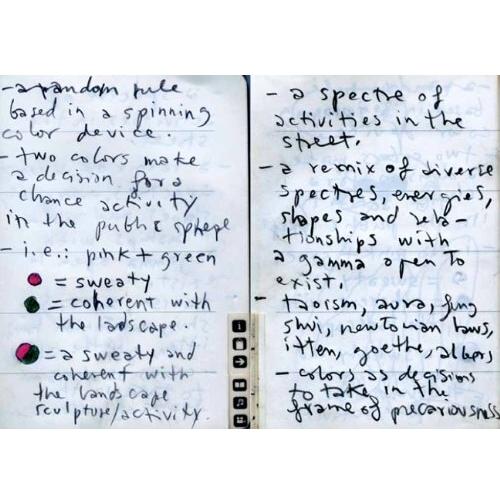 - a random rule
based in a spinning
color device.
- two colors make
a decision for a
chance activity
in the public sphere
- i.e.: pink + green
= sweaty
= coherent with
the ladscape.
= a sweaty and
coherent with
the landscape
sculpture/activity.
- a spectre of
activities in the
street.
- a remix of diverse
spectres, energies,
shapes and rela-
tionships with
a gamma open to
exist.
- taoism, aura, fung
shui, newtonian laws,
itten, goethe, albers
- colors as decisions
to take in the
frame of precariousness